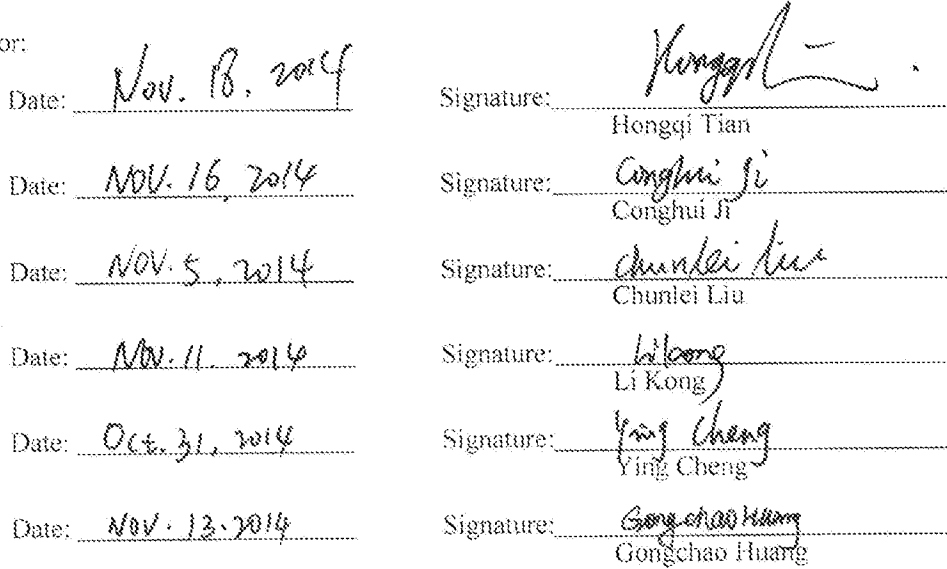 or:
Date: Nov. 18, 2014 Signature: Hongqi
Hongqi Tian
Date: NOV. 16, 2014 Signature: Conghui Ji
Conghui Ji
Date: NOV. 5, 2014 Signature: chunlei liu
Chunlei Liu
Date: NOV. 11. 2014 Signature: Li kong
Li Kong
Date: Oct. 31, 2014 Signature: Ying Cheng
Ying Cheng
Date: NOV. 13. 2014 Signature: Gongchao Huang
Gongchao Huang